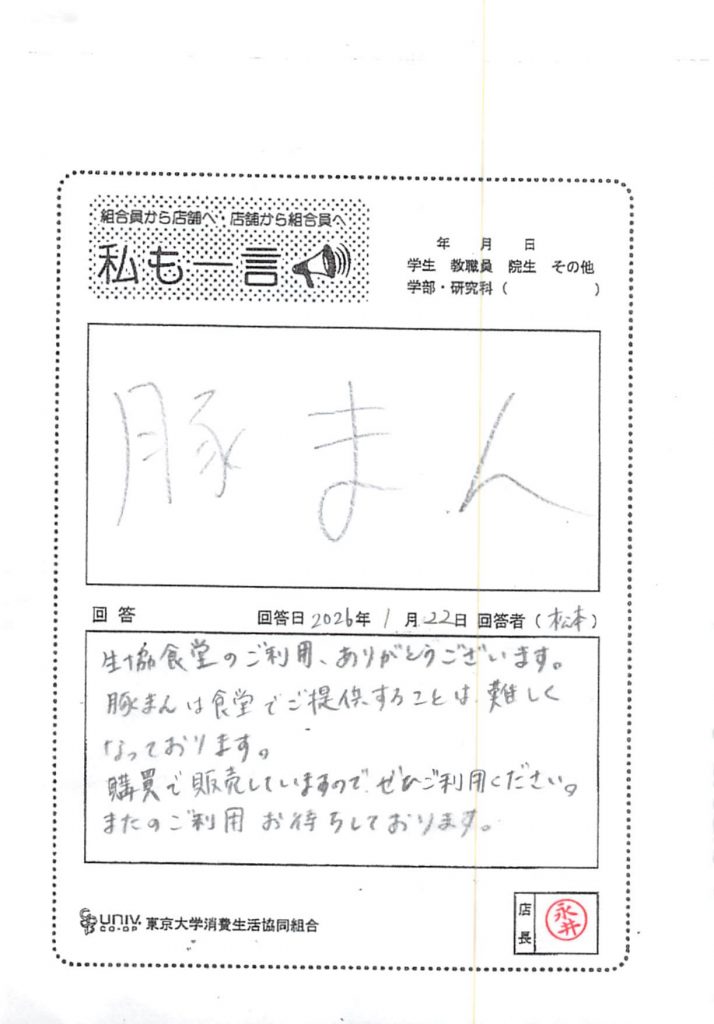 組合員から店舗へ・店舗から組合員へ
私も一言
年 月 日
学生 教職員 院生 その他
学部・研究科( )
豚まん
回答 回答日2026年 1月22日 回答者(松本)
生協食堂のご利用、ありがとうございます。
豚まんは食堂でご提供することは、難しく
なっております。
購買で販売していますので、ぜひご利用ください。
またのご利用 お待ちしております。
UNIV. CO-OP 東京大学消費生活協同組合
店長 永井